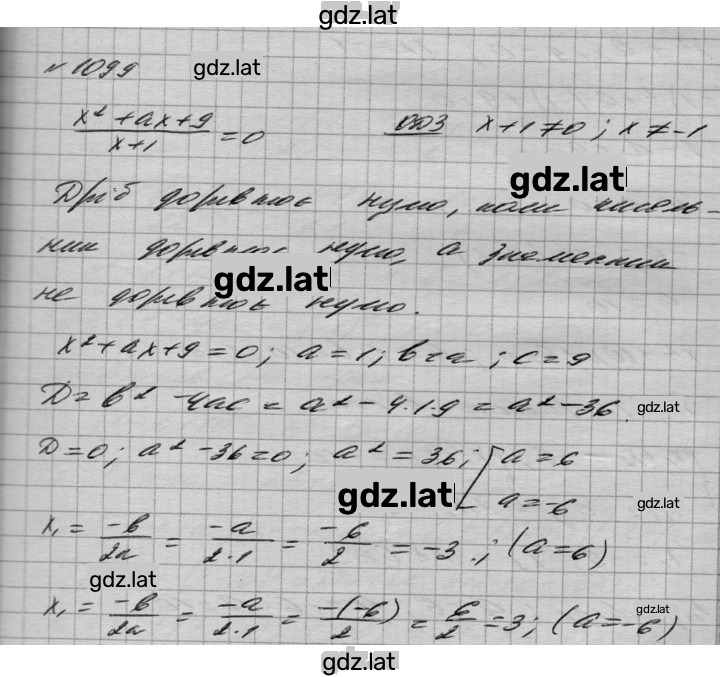 gdz.lat
№ 1099 gdz.lat
(x² + ax + 9)/(x + 1) = 0 ОДЗ x + 1 ≠ 0 ; x ≠ -1
gdz.lat
Дріб дорівнює нулю, коли чисель-
ник дорівнює нулю, а знаменник
gdz.lat
не дорівнює нулю.
x² + ax + 9 = 0; a = 1; b = a ; c = 9
D = b² - 4ac = a² - 4·1·9 = a² - 36. gdz.lat
D = 0; a² - 36 = 0; a² = 36; [ a = 6
gdz.lat a = -6 gdz.lat
x₁ = -b/2a = -a/2·1 = -6/2 = -3 .; (a = 6)
gdz.lat
x₁ = -b/2a = -a/2·1 = -(-6)/2 = 6/2 = 3; (a = -6) gdz.lat
gdz.lat